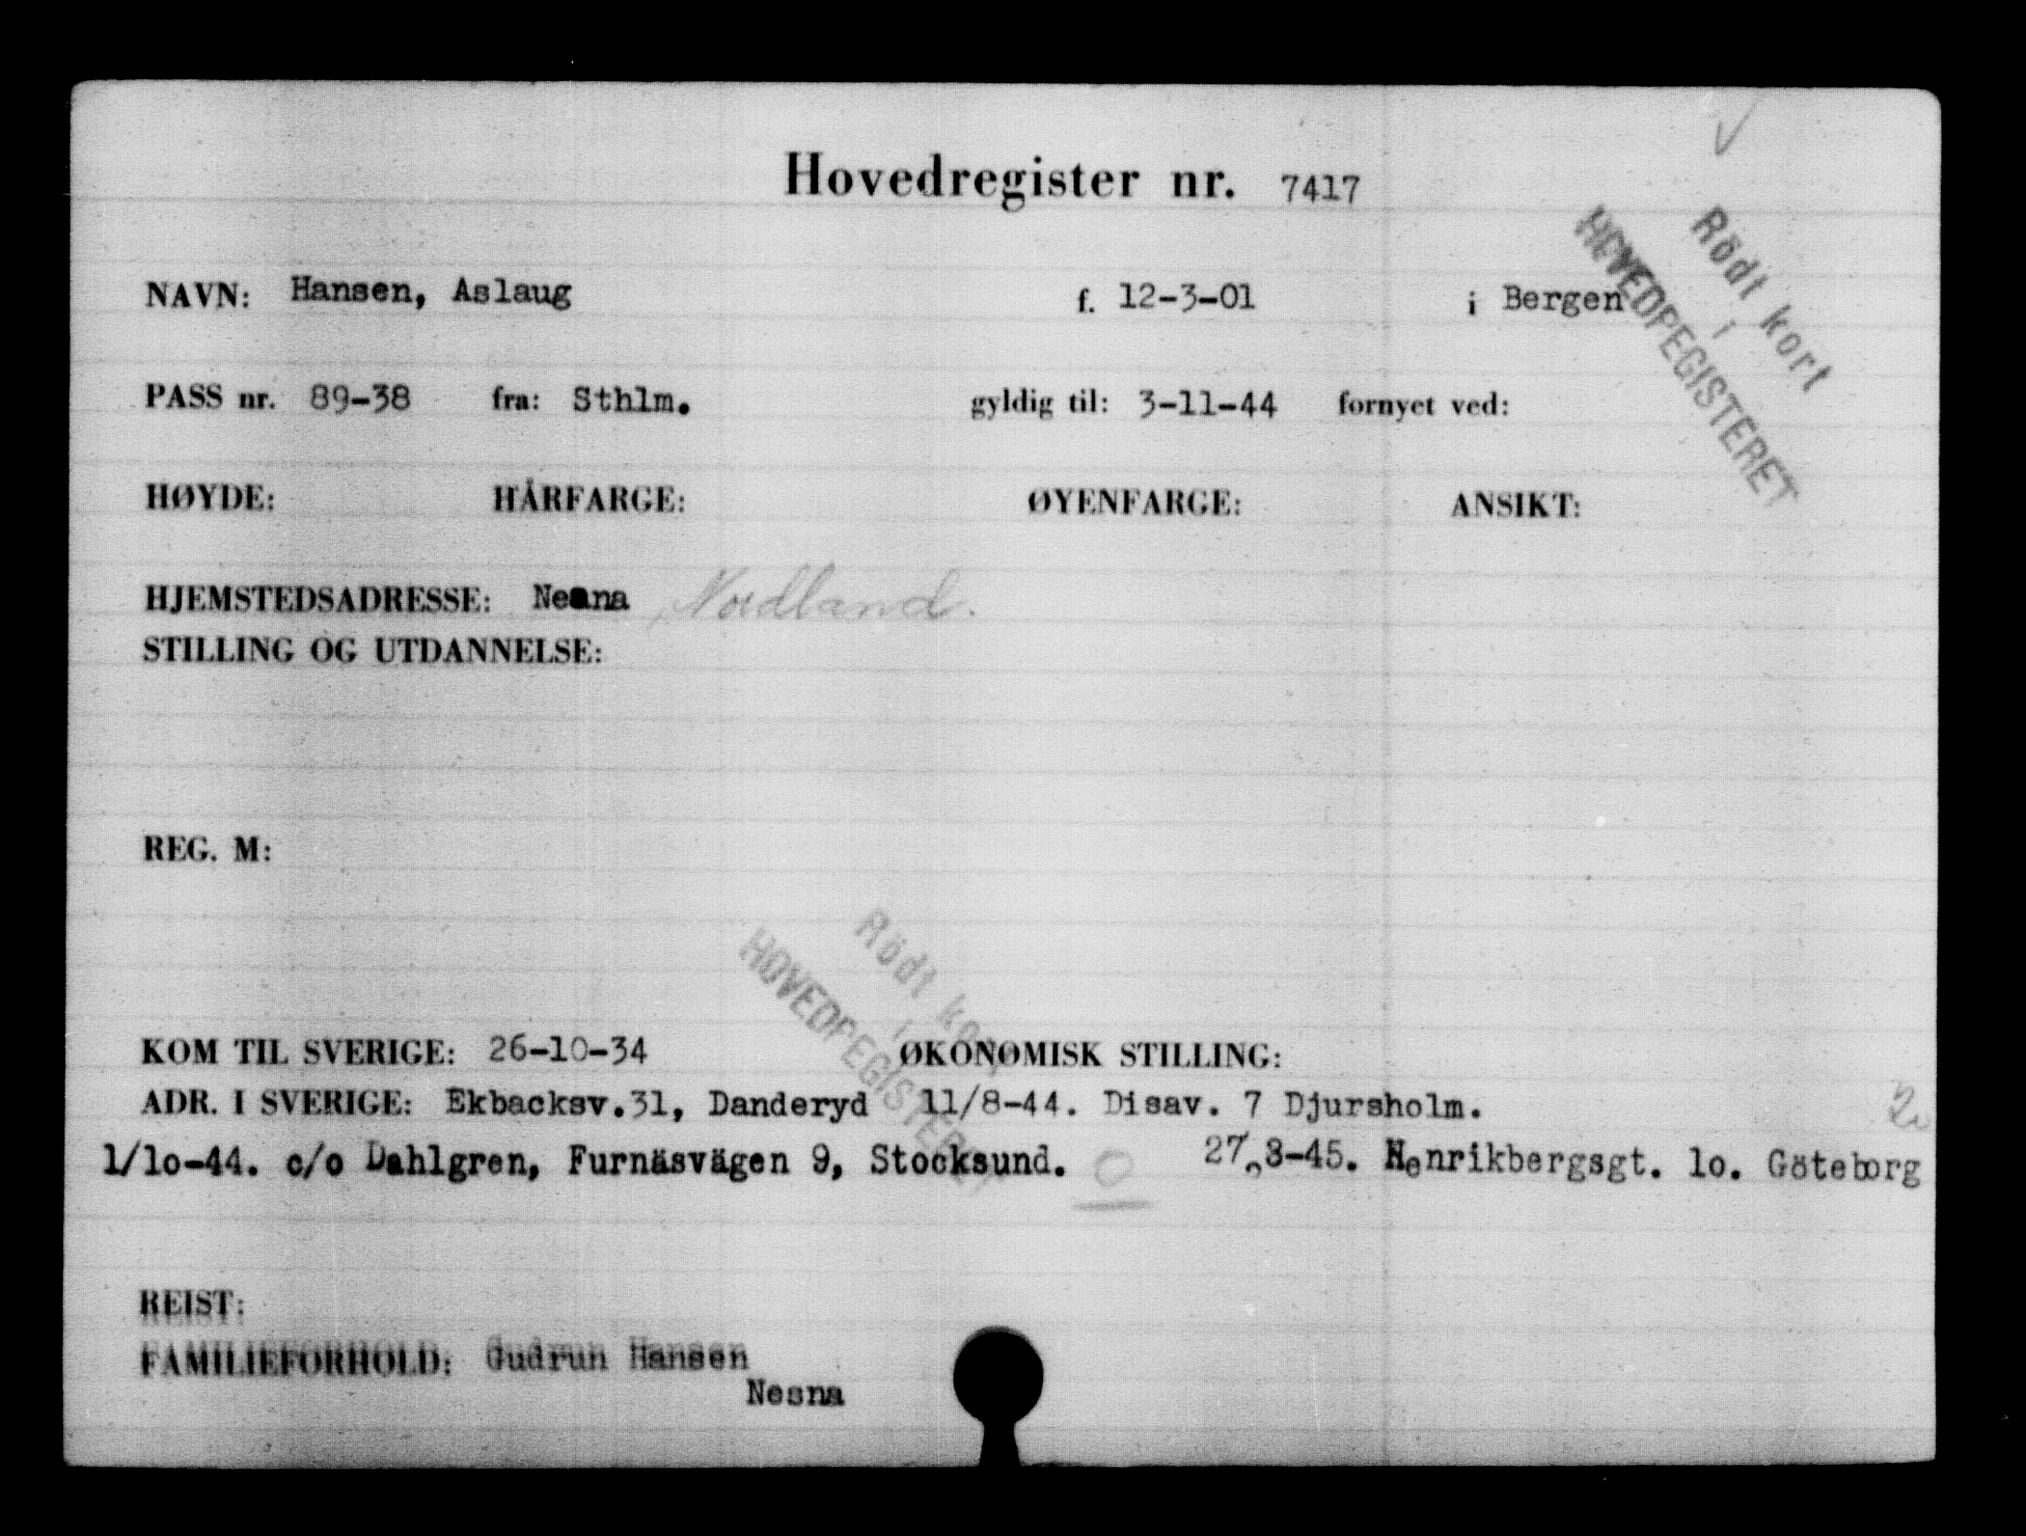 Hovedregister nr. 7417
Rödt kort
i
HOVEDREGISTERET
NAVN: Hansen, Aslaug f. 12-3-01 i Bergen
PASS nr. 89-38 fra: Sthlm. gyldig til: 3-11-44 fornyet ved:
HØYDE: HÅRFARGE: ØYENFARGE: ANSIKT:
HJEMSTEDSADRESSE: Nesna, Nordland.
STILLING OG UTDANNELSE:
REG. M:
Rödt kort
i
HOVEDREGISTERET
KOM TIL SVERIGE: 26-10-34 ØKONOMISK STILLING:
ADR. I SVERIGE: Ekbacksv.31, Danderyd 11/8-44. Disav. 7 Djursholm.
1/lo-44. c/o Dahlgren, Furnäsvägen 9, Stocksund. 0 27/3-45. Henrikbergsgt. lo. Göteborg
REIST:
FAMILIEFORHOLD: Gudrun Hansen
Nesna